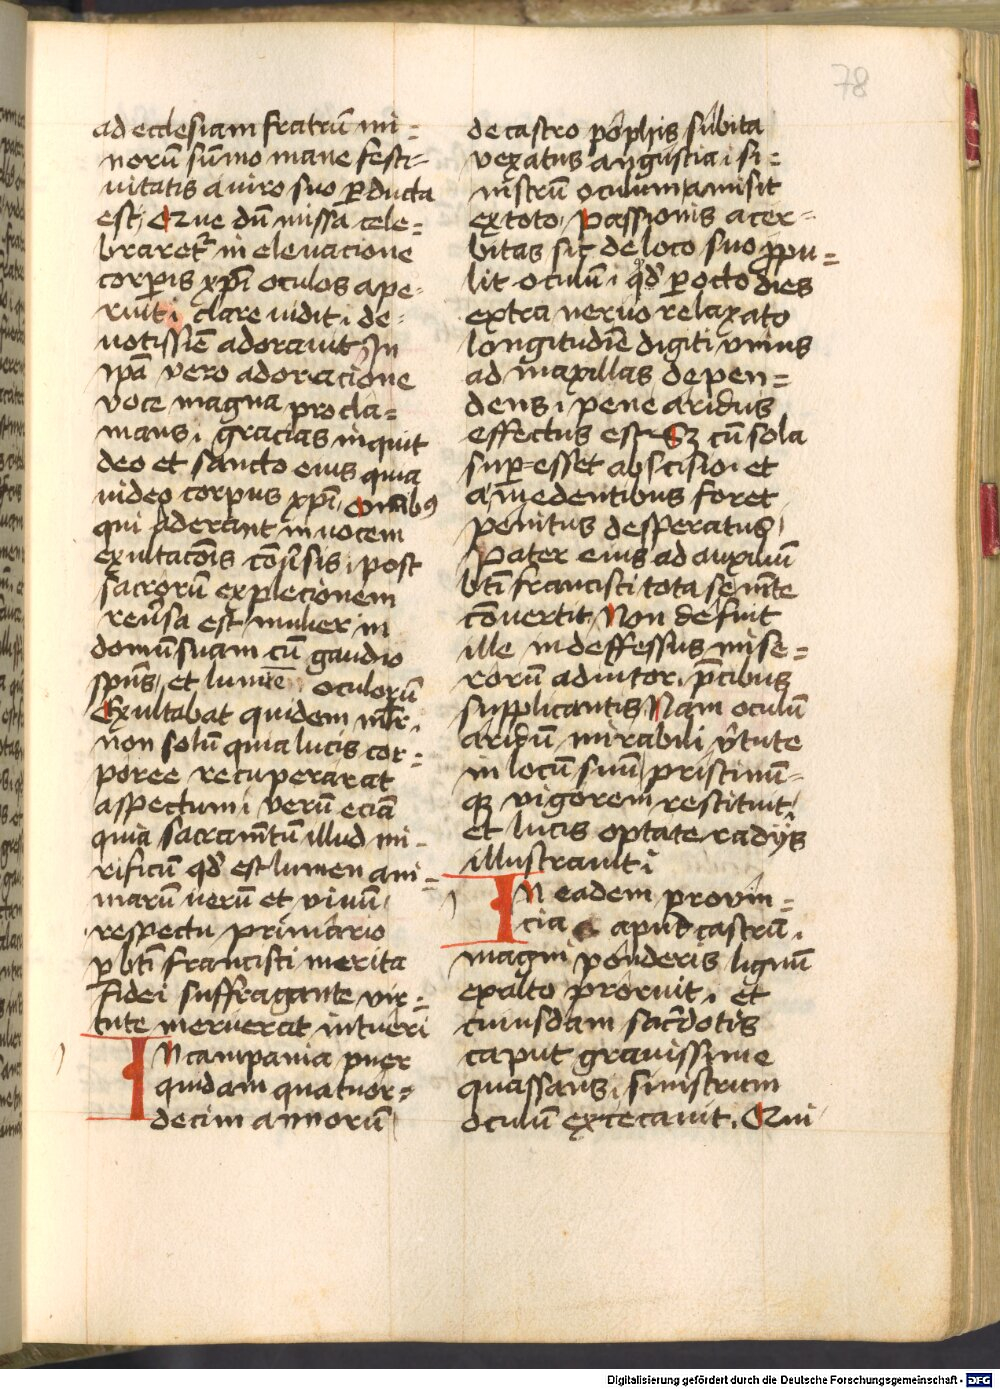 78
ad ecclesiam fratrū mi=
norū sūmo mane festi=
uitatis a viro suo ꝑducta
est, Que dū missa cele=
braretᷣ in eleuacione
corꝑis xp̄i oculos ape-
ruit i clare uidit i de-
uotissīe adorauit In
ip̄a vero adoracione
voce magna procla=
mans i gracias inquit
deo et sancto eius quia
video corpus xp̄i Omībꝰ
qui aderant in vocem
exultacōis cōūsis i post
sacrorū explecionem
reuersa est mulier in
domū suam cū gaudio
sp̄us, et lumīe oculorū
Exultabat quidem mlr̄,
non solū quia lucis cor-
poree recuperarat
aspectum i verū eciā
quia sacramētū illud mi-
rificū qd̓ est lumen ani=
marū uerū et viuū,
respectu primario
ꝑ btī francisci merita
fidei suffragante vir=
tute meruerat intueri
In campania puer
quidam quatuor=
decim annorū
de castro pōphis subita
vexatus angustia i si=
nistrū oculum amisit
ex toto, Passionis acer=
bitas sic de loco suo ꝓpu=
lit oculū i qd̓ ꝑ octo dies
extra neruo relaxato
longitudīe digiti vnius
ad maxillas depen=
dens i pene aridus
effectus est Sꝫ cū sola
suꝑ=esset abscisio i et
a medentibus foret
penitus desperatus,
Pater eius ad auxiliū
btī francisci tota se mēte
cōuertit, Non defuit
ille indeffessus mise=
rorū adiutor, p̄cibus
supplicantis, Nam oculū
aridū mirabili v̓tute
in locū suū pristinū-
qꝫ vigorem restituit,
et lucis optate radijs
illustrauit i
In eadem provin=
cia apud castrū,
magni pōnderis lignū
ex alto proruit, et
cuiusdam sac̓dotis
caput grauissime
quassans, sinistrum
oculū excecauit, Qui
Digitalisierung gefördert durch die Deutsche Forschungsgemeinschaft - DFG